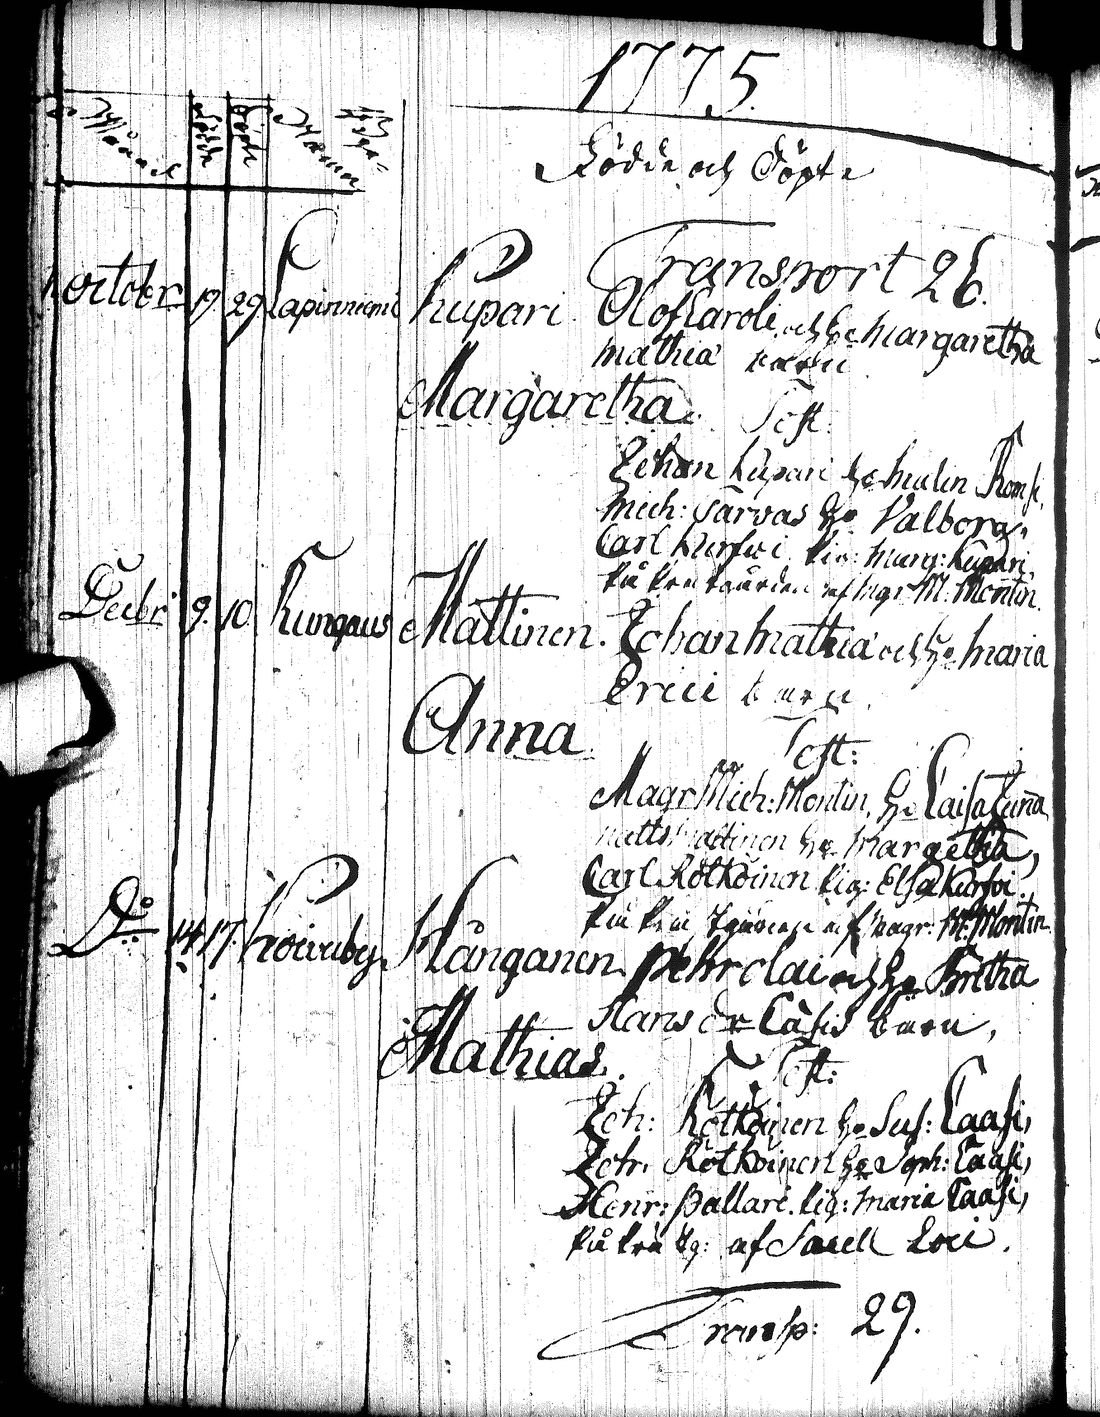 1775.
Månad
Födde
Döpte
Namn
Födde och Döpte
Transport 26.
October 19. 29 Lapinniemi Kupari Olof Caroli och h: Margaretha
Mathiæ barn
Margaretha. Test:
Johan Kupari h: Malin Romsi,
Mich: Sarvas h: Valbora,
Carl Kurfwi pig: Marg: Kupari.
af Mgr M. Montin.
Decbr 9. 10. Kungaus Mattinen. Johan Mathiæ och h: Maria
Erici barn.
Anna Test:
Magr Mich: Montin, h: Caisa
Matts Mattinen h: Margetha,
Carl Rötköinen pig: Elsa Kurfwi.
af Magr: M: Montin.
D:o 14. 17. Koiuriby Hånganen Pehr Olai och h: Bretha
Hans dr Caasi barn,
Mathias. Test:
Joh: Rötköinen h: Sus: Caasi,
Joh: Rötköinen h: Soph: Caasi,
Henr: Pallari. pig: Maria Caasi,
af Sacell Loci.
Transp: 29.